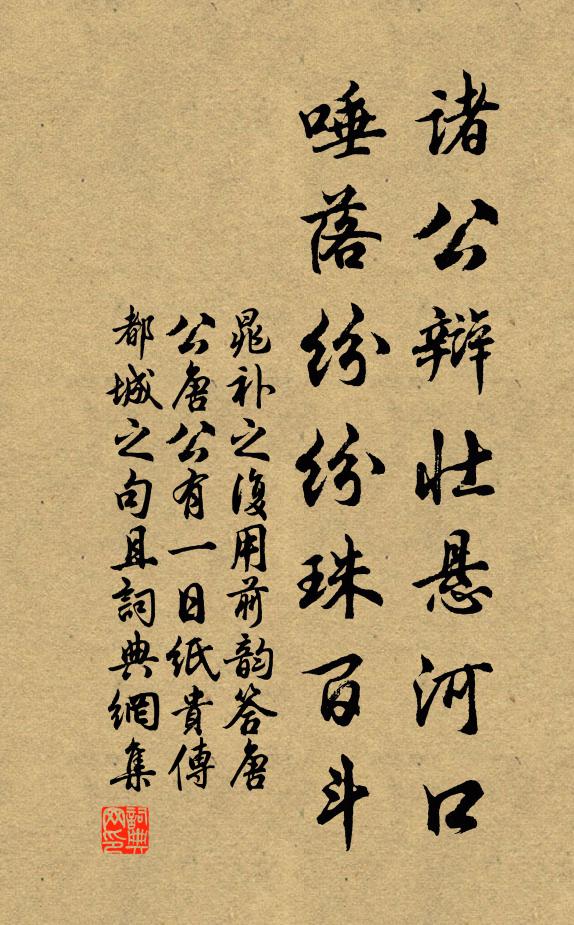 诸公辩壮悬河口
唾落纷纷珠百斗
晁补之復用前韵答唐
公唐公有一日纸貴傳
都城之句且詞典網集
詞典网印